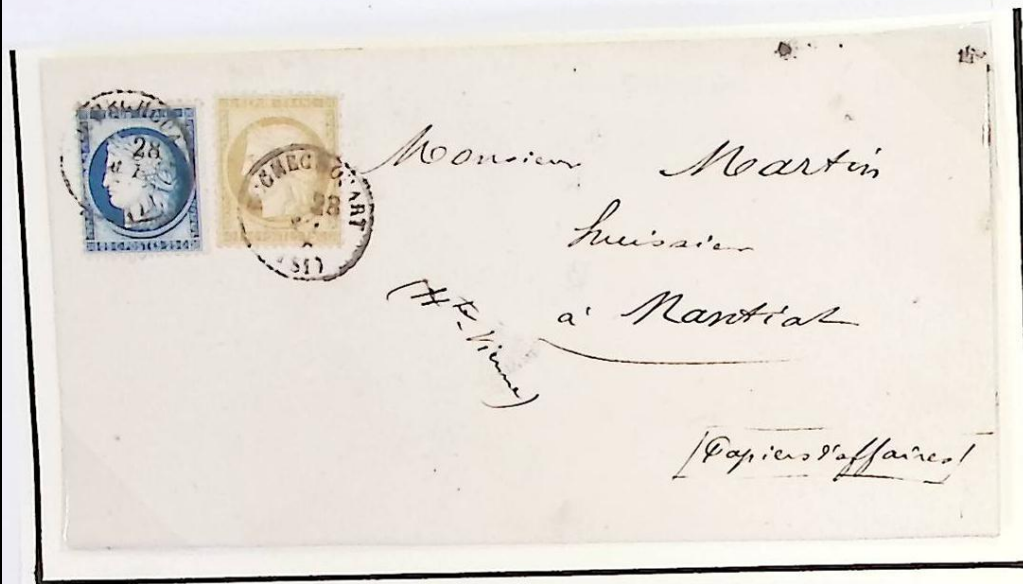 28
28
Monsieur Martin
huissier
à Nantiat
(Hte-Vienne)
Papiers d'affaires